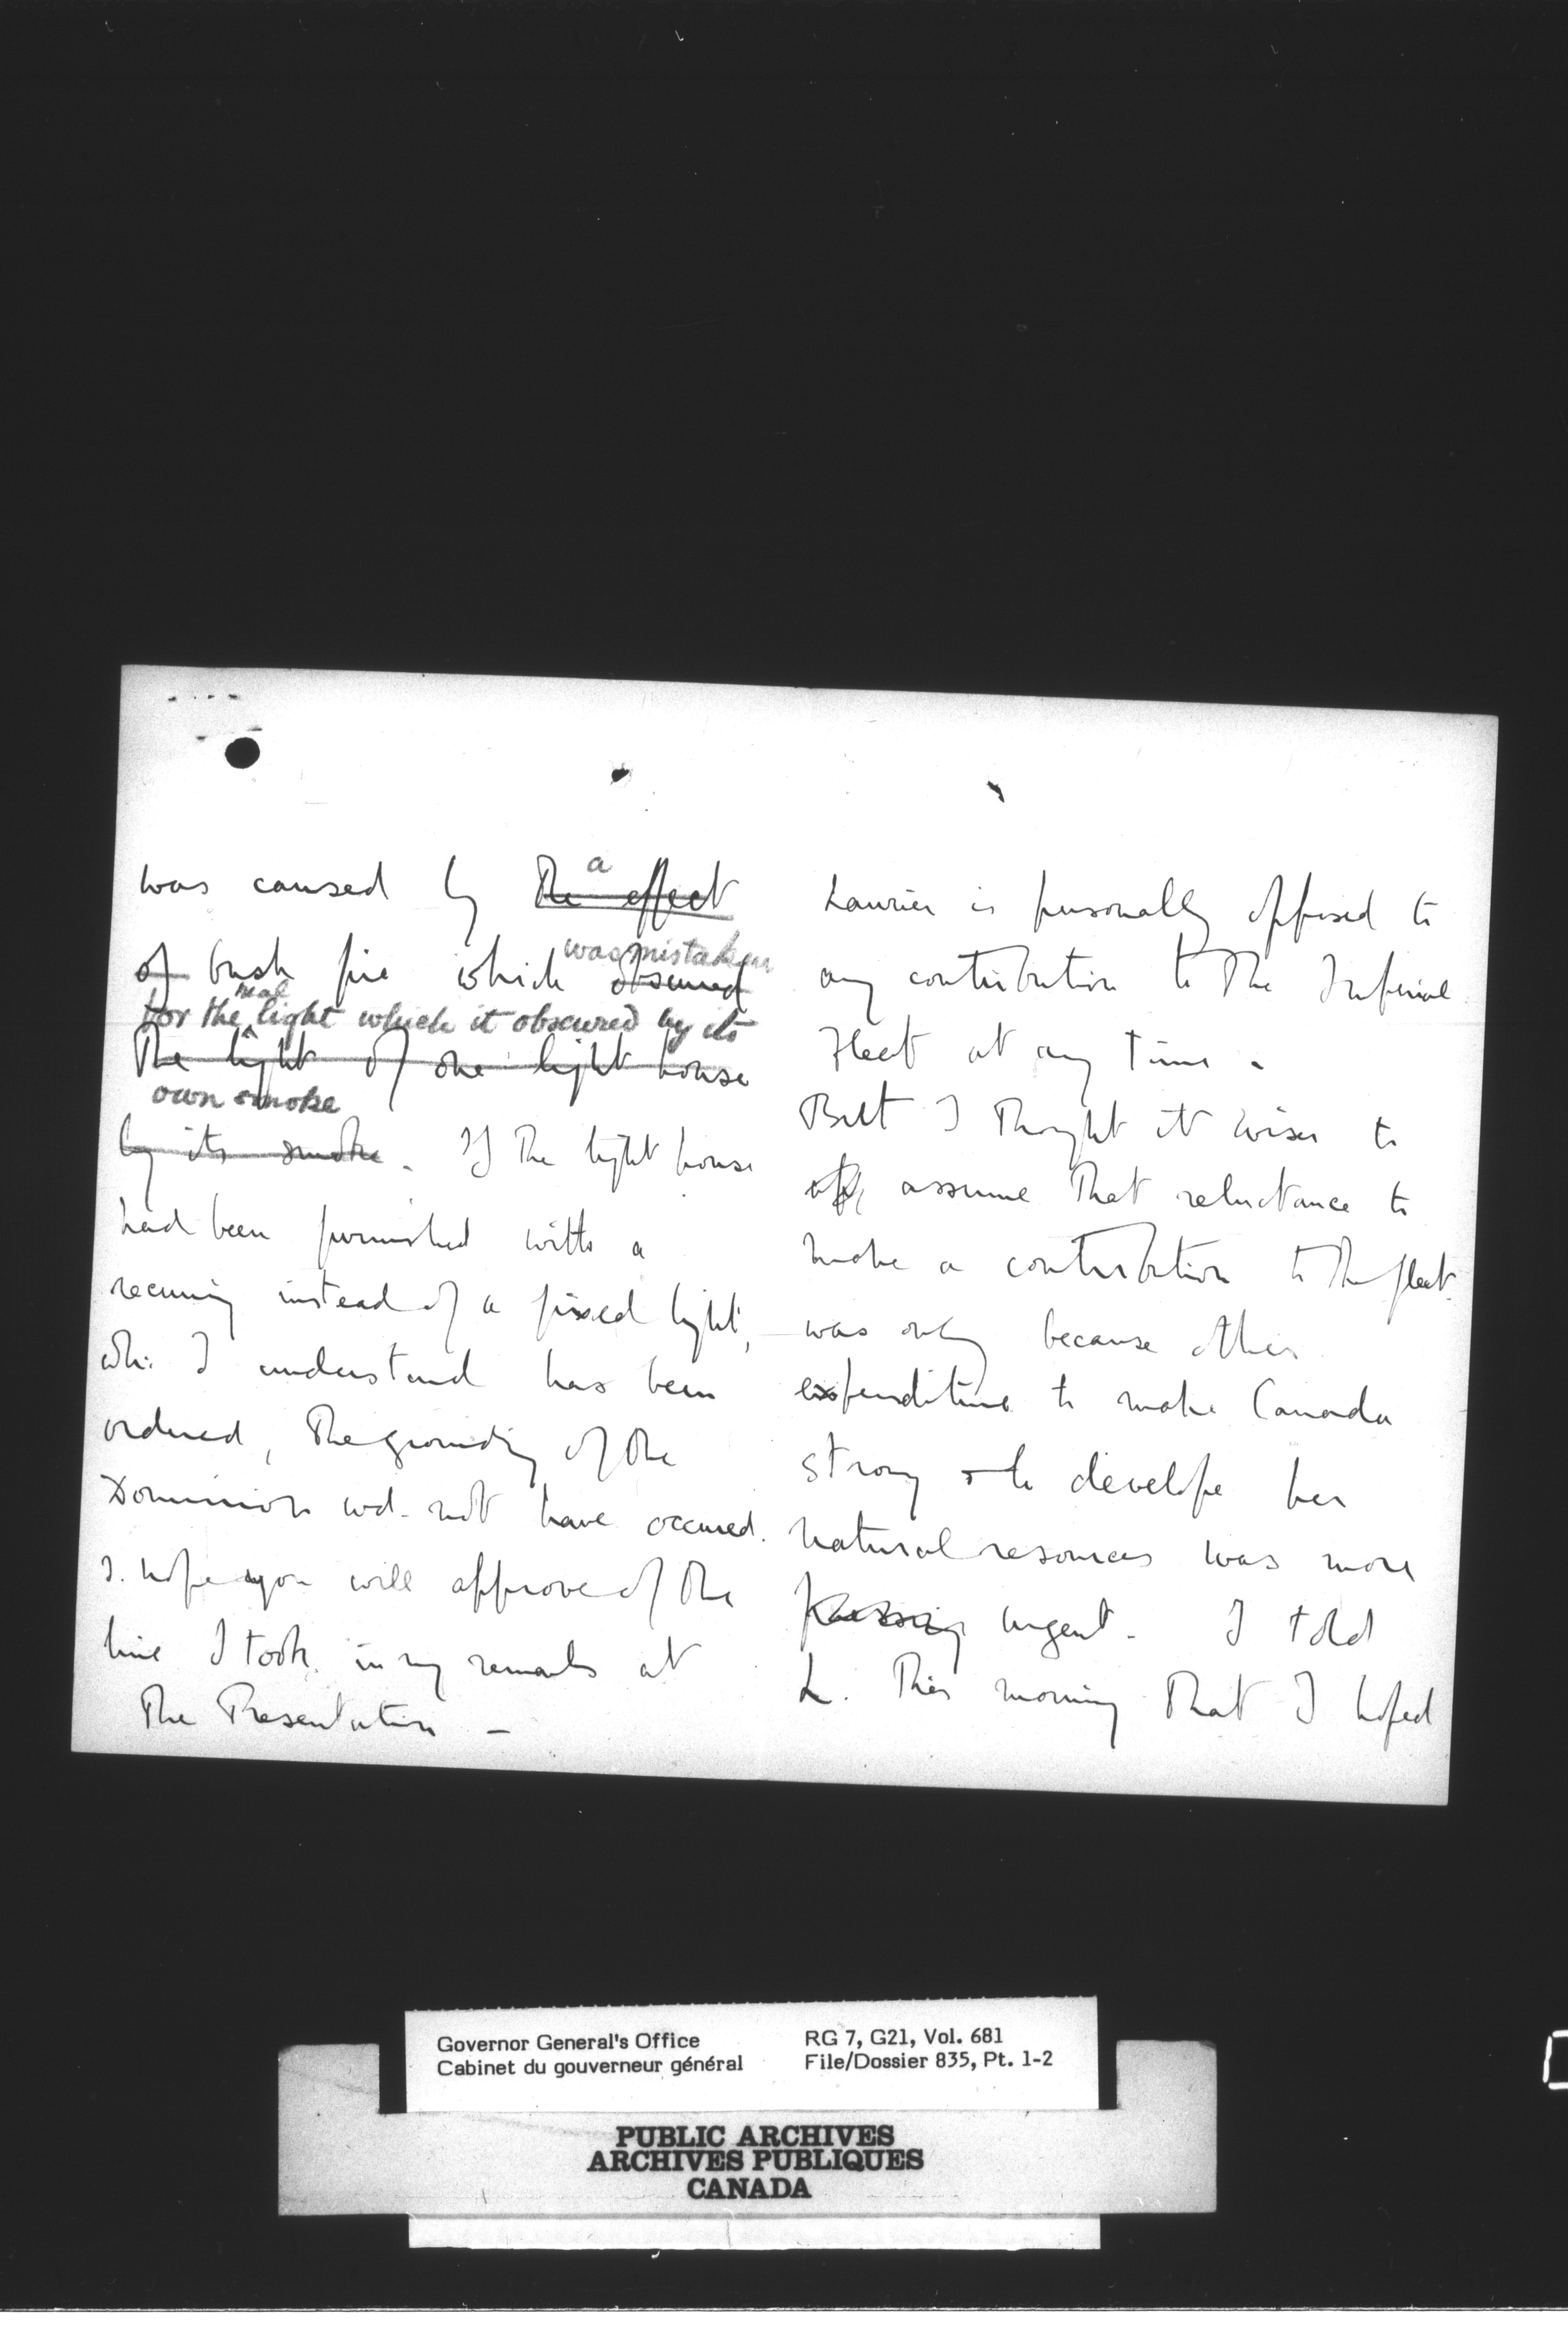 was caused by ~~The effect~~ a
~~of~~ bush fire which ~~obscured~~ was mistaken
for the real light which it obscured by its
~~The light of one light house~~
own smoke
~~by its smoke~~. If the light house
had been furnished with a
recurring instead of a fixed light,
whi: I understand has been
ordered, The grounding of the
Dominion wd. not have occured.
I hope you will approve of the
line I took in my remarks at
The Presentation –
Laurier is personally opposed to
any contribution to The Imperial
Fleet at any time.
But I thought it wiser to
assume that reluctance to
make a contribution to the fleet
was only because other
expenditure to make Canada
strong & to develope her
natural resources was more
~~pressing~~ urgent. I told
L. this morning that I hoped
Governor General's Office
Cabinet du gouverneur général
RG 7, G21, Vol. 681
File/Dossier 835, Pt. 1-2
PUBLIC ARCHIVES
ARCHIVES PUBLIQUES
CANADA